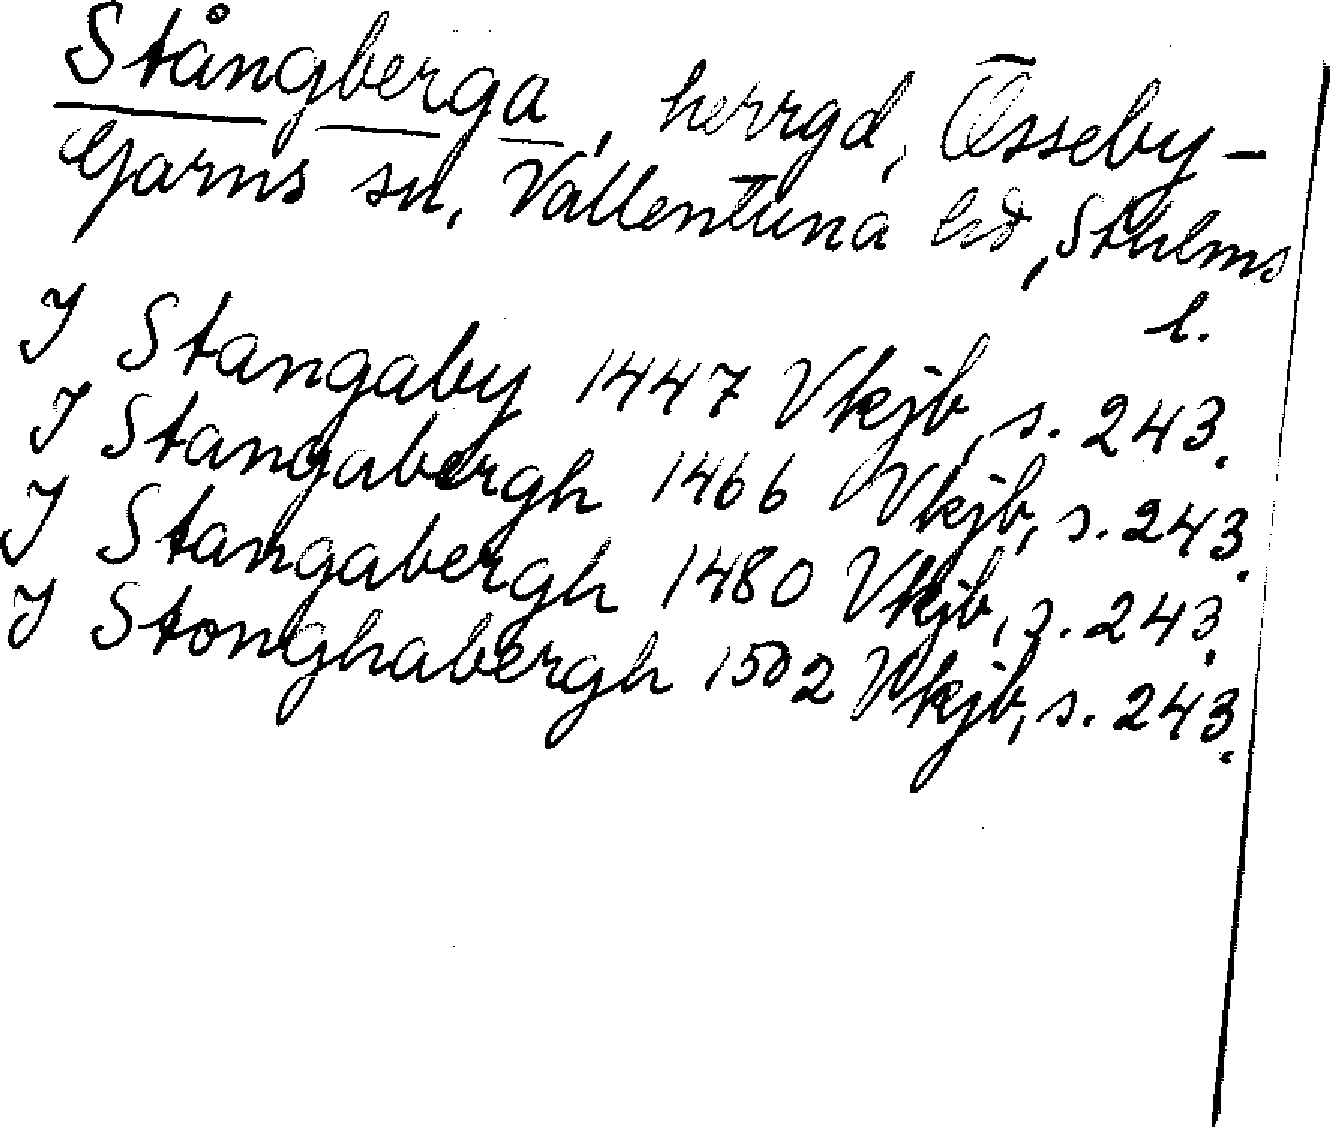 Stångberga, herrgd, Össeby-
Garns sn, Vallentuna hd, Sthlms
l.
I Stangaby 1447 Vkjb, s. 243.
I Stangabergh 1466 Vkjb, s. 243.
I Stangabergh 1480 Vkjb, s. 243.
I Stonghabergh 1502 Vkjb, s. 243.